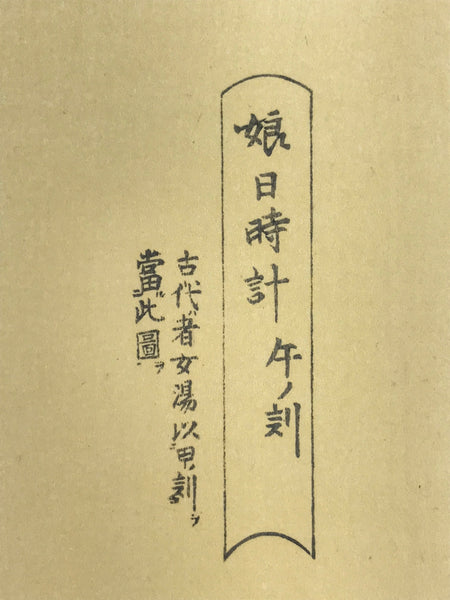 娘日時計 午ノ刻
古代者女湯以甲ノ刻ヲ
當此圖ヲ